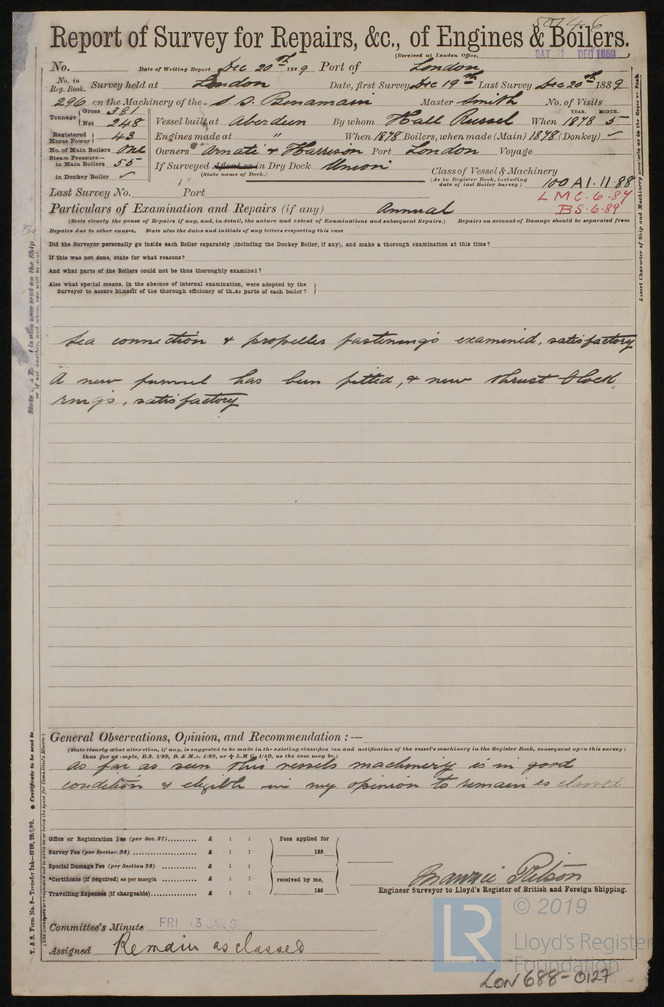 Report of Survey for Repairs, &c., of Engines & Boilers.
(Received at London Office,
SAT 21 DEC 1889
No. Date of Writing Report Dec 20th 1889 Port of London
No. in Reg. Book. Survey held at London Date, first Survey Dec 19th Last Survey Dec 20th 1889
296 on the Machinery of the S.S. Benamain Master Smith No. of Visits
Tonnage Gross 381 Net 248 Vessel built at Aberdeen By whom Hall Russel When 1878 YEAR. MONTH. 5
Registered Horse Power 43 Engines made at " When 1878 Boilers, when made (Main) 1878 (Donkey) ✓
No. of Main Boilers One Owners & Harrison Port London Voyage
Steam Pressure— in Main Boilers 55 If Surveyed Afloat or in Dry Dock Union
(State name of Dock.)
in Donkey Boiler ✓
Class of Vessel & Machinery
(As in Register Book, including date of last Boiler Survey.)
100 A1. 11.88
L M C. 6.89
B S. 6.89
Last Survey No. Port
Particulars of Examination and Repairs (if any) Annual
(State clearly the cause of Repairs if any, and, in detail, the nature and extent of Examinations and subsequent Repairs.) Repairs on account of Damage should be separated from
Repairs due to other causes, State also the dates and initials of any letters respecting this case
Did the Surveyor personally go inside each Boiler separately (including the Donkey Boiler, if any), and make a thorough examination at this time?
If this was not done, state for what reasons?
And what parts of the Boilers could not be thus thoroughly examined?
Also what special means, in the absence of internal examination, were adopted by the
Surveyor to assure himself of the thorough efficiency of those parts of each boiler?
Sea connection & propeller fastenings examined, satisfactory
A new funnel has been fitted, & new thrust block
rings, satisfactory
General Observations, Opinion, and Recommendation :—
(State clearly what alteration, if any, is suggested to be made in the existing classification and notification of the vessel's machinery in the Register Book, consequent upon this survey;
thus for example, B.S. 1/89, B. & M.S. 1/89, or L.M.C. 1/89, as the case may be.)
As far as seen this vessels machinery is in good
condition & eligible in my opinion to remain as classed
Office or Registration Fee (per Sec. 27) £ : : Fees applied for
Survey Fee (per Section 28) £ : : 188
Special Damage Fee (per Section 28) £ : :
*Certificate (if required) as per margin £ : : received by me,
Travelling Expenses (if chargeable) £ : : 188
Engineer Surveyor to Lloyd's Register of British and Foreign Shipping.
Committee's Minute FRI 3 JAN 9
Assigned Remain as classed
© 2019
LR
Lloyd's Register
Foundation
LON 688-0127